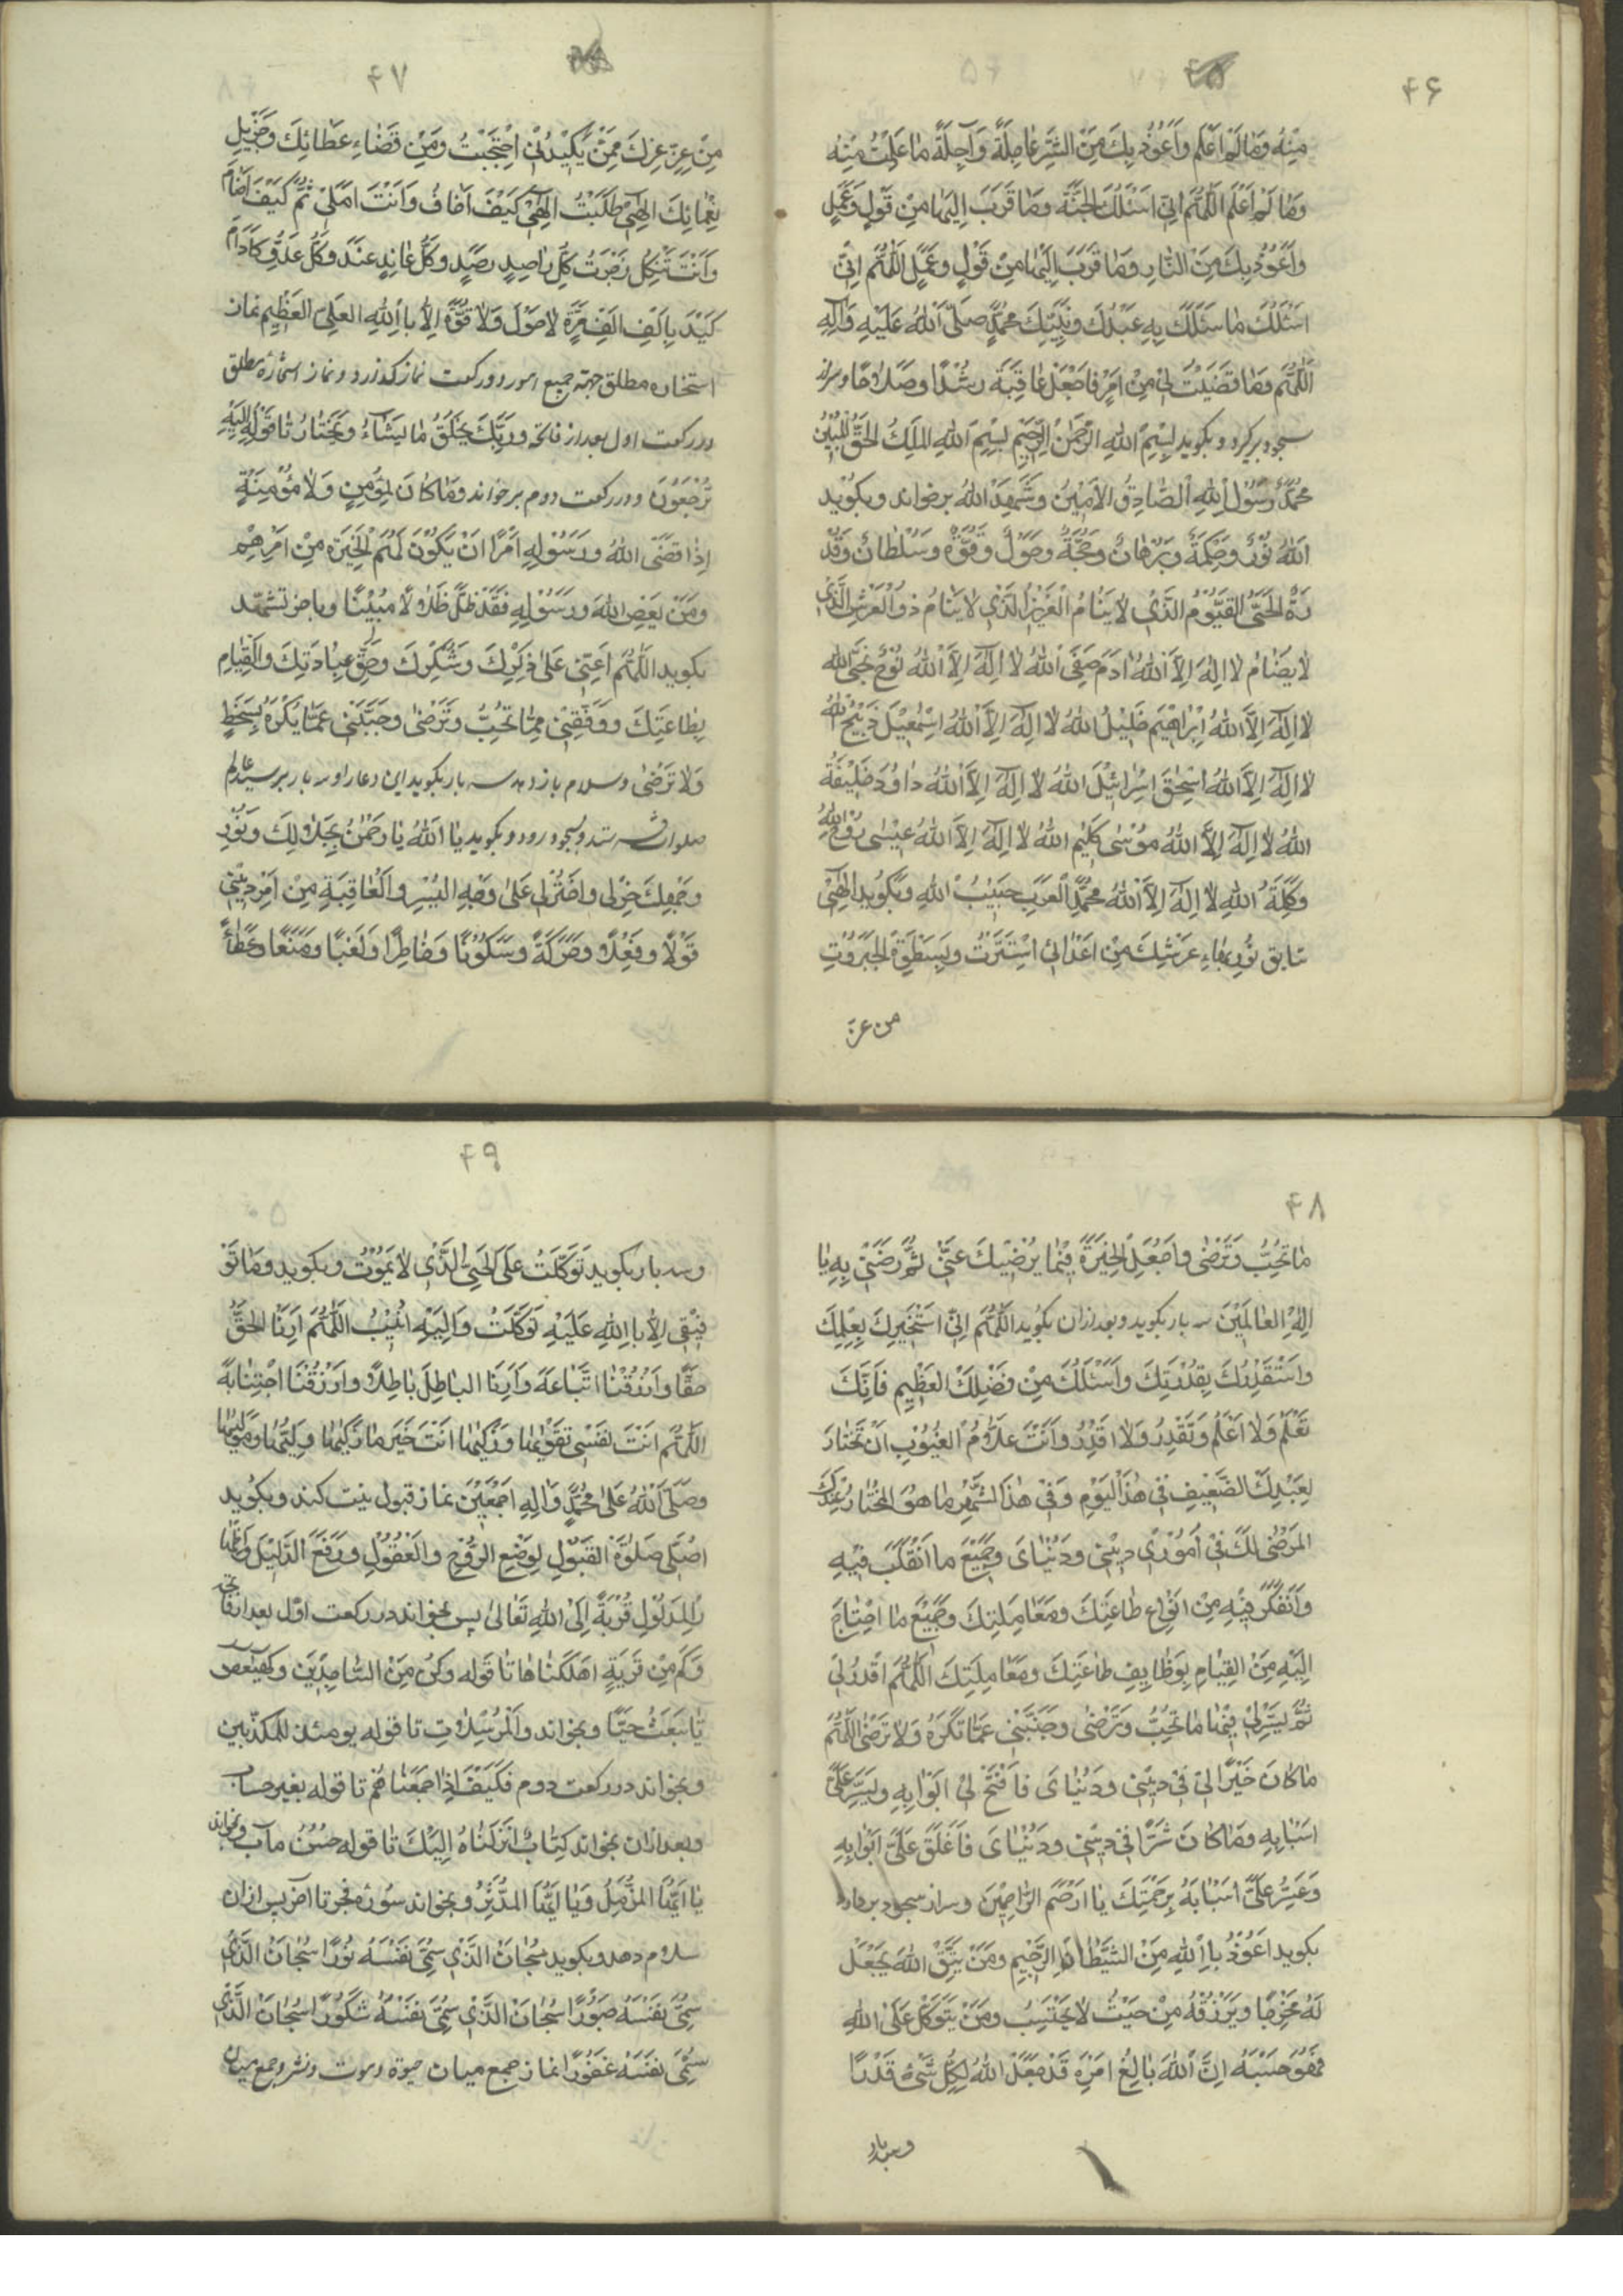 ۴۶
منه وما لم اعلم واعوذ بك من الشر عاجلة وآجلة ما علمت منه
وما لم اعلم اللهم انى اسئلك الجنة وما قرب اليها من قول وعمل
واعوذ بك من النار وما قرب اليها من قول وعمل اللهم انى
اسئلك ما سئلك به عبدك ونبيك محمد صلى الله عليه وآله
اللهم وما قضيت لى من امر فاجعل عاقبة رشدا وصلاحا وسراز
سجود برگيرد وبكويد بسم الله الرحمن الرحيم بسم الله الملك الحق المبين
محمد رسول الله الصادق الامين وشهد الله برخواند وبكويد
الله نور وحكمة وبرهان وحجة وحول وقوة وسلطان وقد
رة الحى القيوم الذى لا ينام العزيز الذى لا ينام ذو العرش الذى
لا يضام لا اله الا الله ادم صفى الله لا اله الا الله نوح نجى الله
لا اله الا الله ابراهيم خليل الله لا اله الا الله اسمعيل ذبيح الله
لا اله الا الله اسحق اسرائيل الله لا اله الا الله داود خليفة
الله لا اله الا الله موسى كليم الله لا اله الا الله عيسى روح الله
وكلمة الله لا اله الا الله محمد العربى حبيب الله وبكويد الهى
بسابق نور بهاء عرشك من اعدائى استترت وبسطوة الجبروت
من عز
۴۷
من عز عزك ممن يكيدنى احتجبت ومن قضاء عطائك وجزيل
نعمائك الهى طلبت الهى كيف اخاف وانت املى ثم كيف اضام
وانت متكلى ضربت كل راصد رصد وكل عاند عند وكل عدو كاد ام
كيد بالف الف مرة لا حول ولا قوة الا بالله العلى العظيم نماز
استخاره مطلق جهة جميع امور دو ركعت نماز كذارد ونماز استخاره مطلق
در ركعت اول بعد از فاتحه وربك يخلق ما يشاء ويختار تا قوله اليه
ترجعون ودر ركعت دوم برخواند وما كان لمؤمن ولا مؤمنة
اذا قضى الله ورسوله امرا ان يكون لهم الخيرة من امرهم
ومن يعص الله ورسوله فقد ضل ضلالا مبينا وباخر تشهد
بكويد اللهم اعنى على ذكرك وشكرك وحق عبادتك والقيام
بطاعتك ووفقنى مما تحب وترضى وجنبنى عما يكره بسخط
ولا ترضى وسلام باز دهد سه بار بكويد اين دعا را وسه بار بر سيد عالم
صلوات فرستد وبسجود رود وبكويد يا الله يا رحمن بجلالك وبنور
وجهك خر لى واختر لى على وجه اليسر والعاقبة من امر دينى
قولا وفعلا وحركة وسكونا وخاطرا ولغبا ومنعا وعطاء
۴۸
ما تحب وترضى واجعل الخيرة فيما يرضيك عنى ثم رضنى به يا
اله العالمين سه بار بكويد وبعد ازان بكويد اللهم انى استخيرك بعلمك
واستقدرك بقدرتك واسئلك من فضلك العظيم فانك
تعلم ولا اعلم وتقدر ولا اقدر وانت علام الغيوب ان تختار
لعبدك الضعيف فى هذا اليوم وفى هذا الشهر ما هو المختار عندك
المرضى لك فى امورى دينى ودنياى وجميع ما انقلب فيه
واتفكر فيه من انواع طاعتك ومعاملتك وجميع ما احتاج
اليه من القيام بوظايف طاعتك ومعاملتك اللهم اقدر لى
ثم يسر لى فيها ما تحب وترضى وجنبنى عما تكره ولا ترضى اللهم
ما كان خيرا لى فى دينى ودنياى فافتح لى ابوابه ويسر على
اسبابه وما كان شرا فى دينى ودنياى فاغلق على ابوابه
وعسر على اسبابه برحمتك يا ارحم الراحمين وسر از سجود بردارد
بكويد اعوذ بالله من الشيطان الرجيم ومن يتق الله يجعل
له مخرجا ويرزقه من حيث لا يحتسب ومن يتوكل على الله
فهو حسبه ان الله بالغ امره قد جعل الله لكل شىء قدرا
وسه بار
۴۹
وسه بار بكويد توكلت على الحى الذى لا يموت وبكويد وما تو
فيقى الا بالله عليه توكلت واليه انيب اللهم ارنا الحق
حقا وارزقنا اتباعه وارنا الباطل باطلا وارزقنا اجتنابه
اللهم انت نفسى تقويها وزكيها انت خير ما زكيها وليها ومولیها
وصلى الله على محمد واله اجمعين نماز قبول نيت كند وبكويد
اصلى صلوة القبول لوضع الروح والعقول ورفع الدليل
المدلول قربة الى الله تعالى پس بخواند در ركعت اول بعد از فاتحه
وكم من قرية اهلكناها تا قوله وكن من الساجدين وكهيعص
تا يبعث حيا وبخواند والمرسلات تا قوله يومئذ للمكذبين
وبخواند در ركعت دوم فكيف اذا جمعناهم تا قوله بغير حساب
وبعد ازان بخواند كتاب انزلناه اليك تا قوله حسن مآب وبخواند
يا ايها المزمل ويا ايها المدثر وبخواند سوره فجر تا آخر پس ازان
سلام دهد وبكويد سبحان الذى سمى نفسه نورا سبحان الذى
سمى نفسه صبورا سبحان الذى سمى نفسه شكورا سبحان الذى
سمى نفسه غفورا نماز جمع ميان حيوة وموت ونشر وجمع ميان